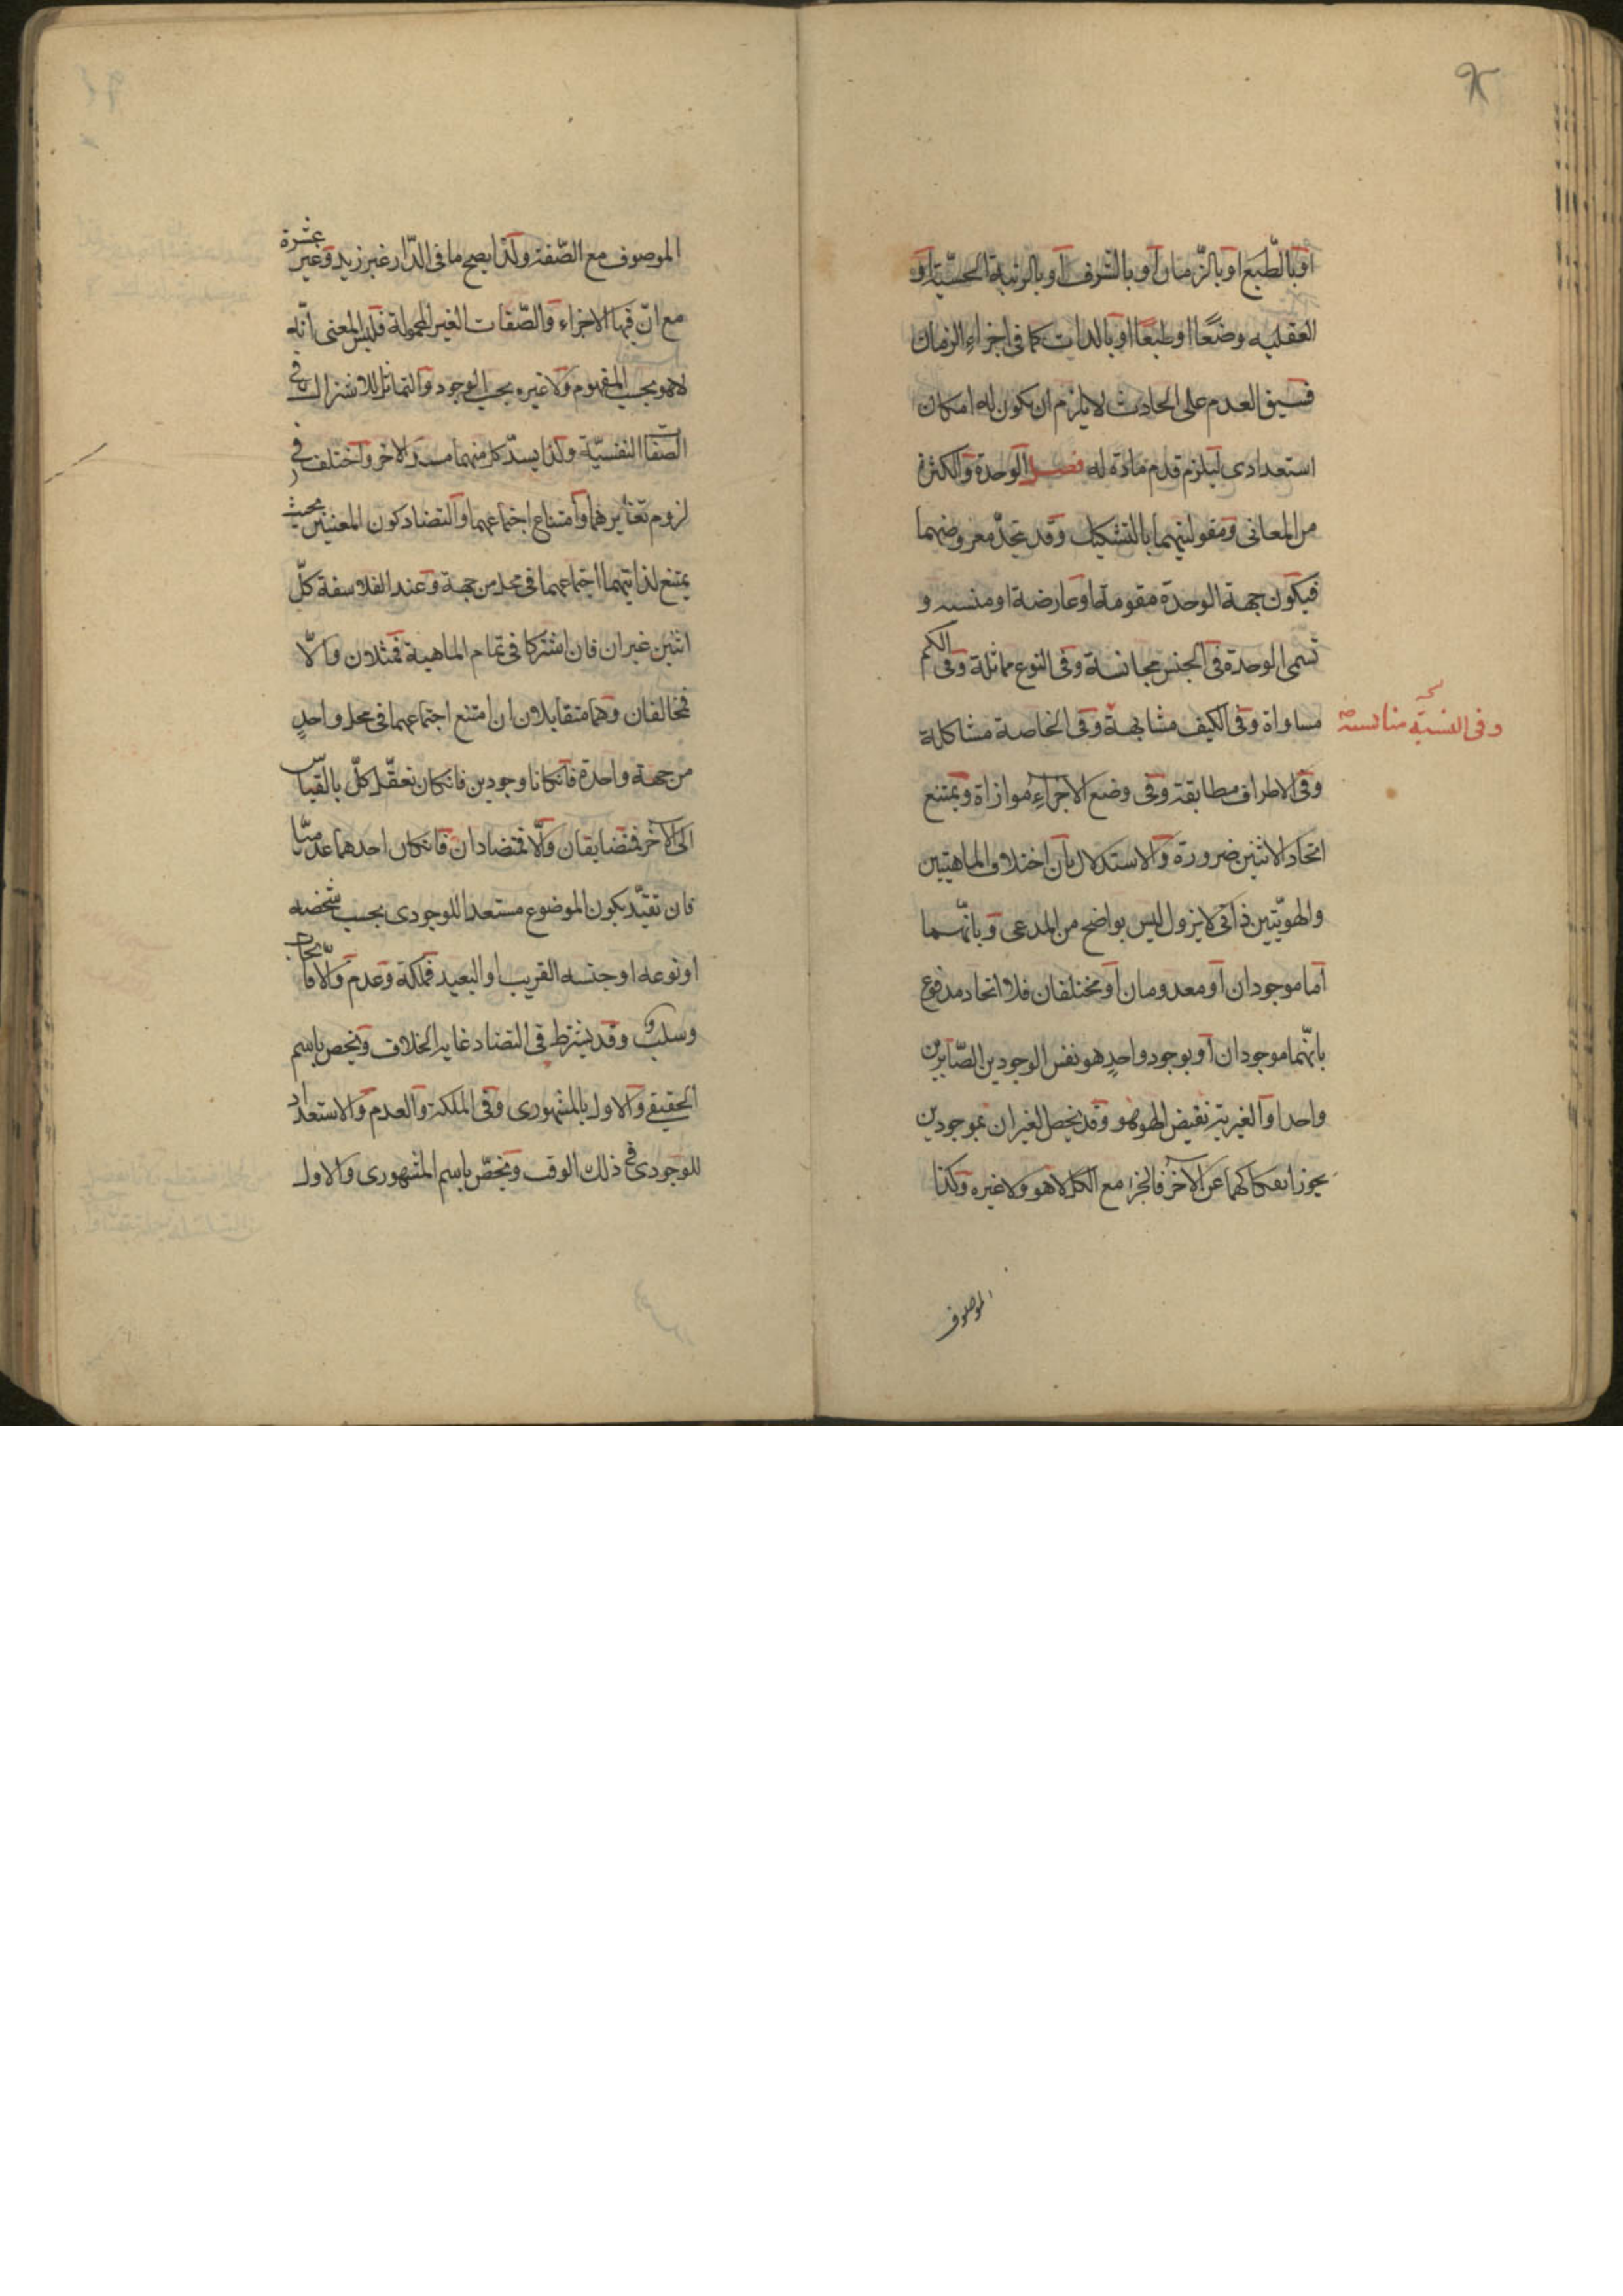 او بالطّبع او بالزّمان او بالشرف او بالرتبة الحسّية او
العقليه وضعًا او طبعًا او بالذات كما فى اجزاء الزمان
فسبق العدم على الحادث لا يلزم ان يكون له امكان
استعدادى ليلزم قدم مادة له فصل الوحدة والكثرة
من المعانى ومقوليتهما بالتشكيك وقد يتحدّ معروضهما
فيكون جهة الوحدة مقومة او عارضة او منتسبه و
تسمى الوحدة فى الجنس مجانسة وفى النوع مماثلة وفى الكم
مساواة وفى الكيف مشابهة وفى الخاصة مشاكلة
وفى النسبة مناسبة
وفى الاطراف مطابقة وفى وضع الاجزاء موازاة ويمتنع
اتحاد الاثنين ضرورة والاستدلال بان اختلاف الماهيتين
والهويّتين ذاتى لا يزول ليس بواضح من المدعى وبانّهما
اما موجودان او معدومان او مختلفان فلا اتحاد مدفوع
بانّهما موجودان او بوجود واحدٍ هو نفس الوجودين الصّايرين
واحدا والغيرية نقيض الهوهو وقد يخص الغيران بموجودين
يجوز انفكاكهما عن الآخر فالجزء مع الكل لا هو ولا غيره وكذا
الموصوف
الموصوف مع الصّفة ولذا يصح ما فى الدّار غير زيد وغير عشرة
مع انّ فيها الاجزاء والصّفات الغير المحمولة فليس المعنى انّه
لا هو بحسب المفهوم ولا غيره بحسب الوجود والتماثل الاشتراك فى
الصفات النفسيّة ولذا يسدّ كل منهما مسدّ الآخر واختلف فى
لزوم تغايرهما وامتناع اجتماعهما والتضاد كون المعنيين بحيث
يمتنع لذاتيهما اجتماعهما فى محل من جهة وعند الفلاسفة كلّ
اثنين غيران فان اشتركا فى تمام الماهية فمثلان والّا
فمخالفان وهما متقابلان ان امتنع اجتماعهما فى محل واحدٍ
من جهة واحدة فانكانا وجودين فانكان تعقّل كلّ بالقياس
الى الآخر فمتضايفان والّا فمتضادان فانكان احدهما عدميّا
فان تقيّد بكون الموضوع مستعدا للوجودى بحسب شخصه
او نوعه او جنسه القريب او البعيد فملكة وعدم والا فايجاب
وسلب وقد يشترط فى التضاد غاية الخلاف ويخص باسم
الحقيقى والاول بالمشهورى وفى الملكة والعدم والاستعداد
للوجودى فى ذلك الوقت ويخصّ باسم المشهورى والاول